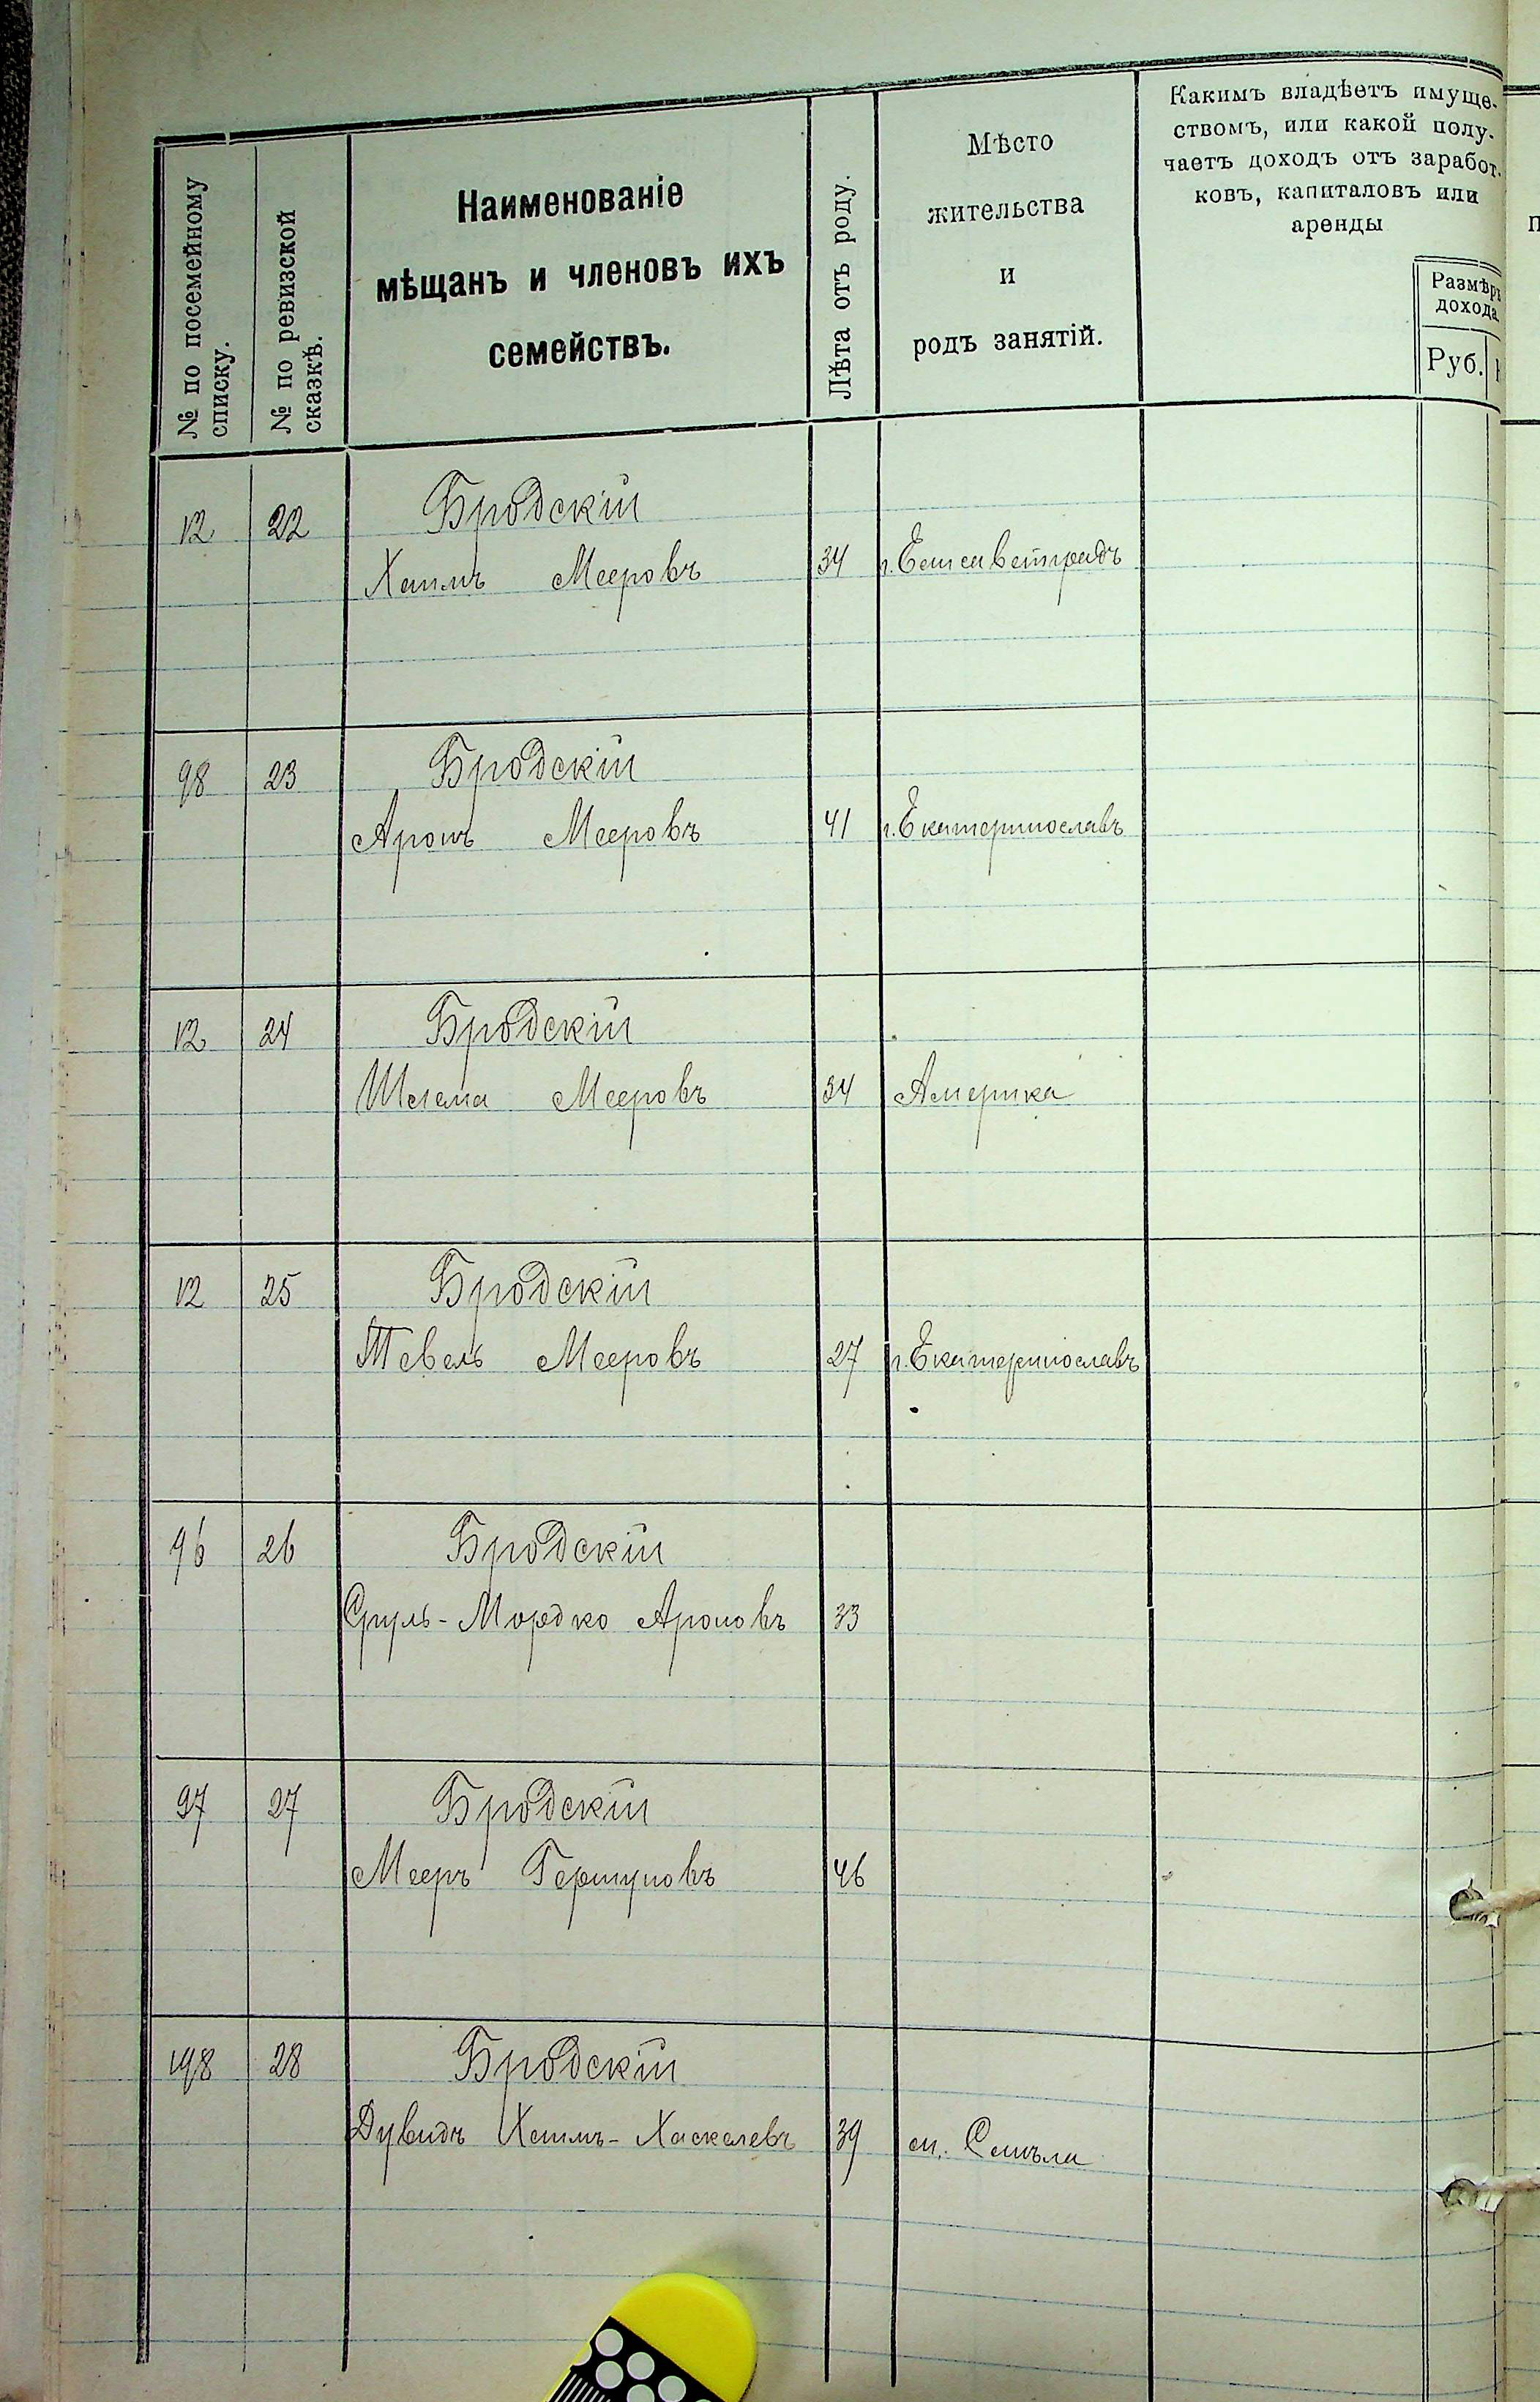 № по посемейному
списку.
№ по ревизской
сказкѣ.
Наименованіе
мѣщанъ и членовъ ихъ
семействъ.
Лѣта отъ роду.
Мѣсто
жительства
и
родъ занятій.
Какимъ владѣетъ имуще-
ствомъ, или какой полу-
чаетъ доходъ отъ заработ-
ковъ, капиталовъ или
аренды
Размѣръ
дохода
Руб.
12 22 Бродскій
Хаимъ Мееровъ 34 г. Елисаветградъ
98 23 Бродскій
Аронъ Мееровъ 41 г. Екатеринославъ
12 24 Бродскій
Шлема Мееровъ 34 Америка
12 25 Бродскій
Тевель Мееровъ 27 г. Екатеринославъ
96 26 Бродскій
Сруль-Мордко Ароновъ 33
97 27 Бродскій
Мееръ Гершуновъ 46
198 28 Бродскій
Дувидъ Хаимъ-Хаскелевъ 39 м.